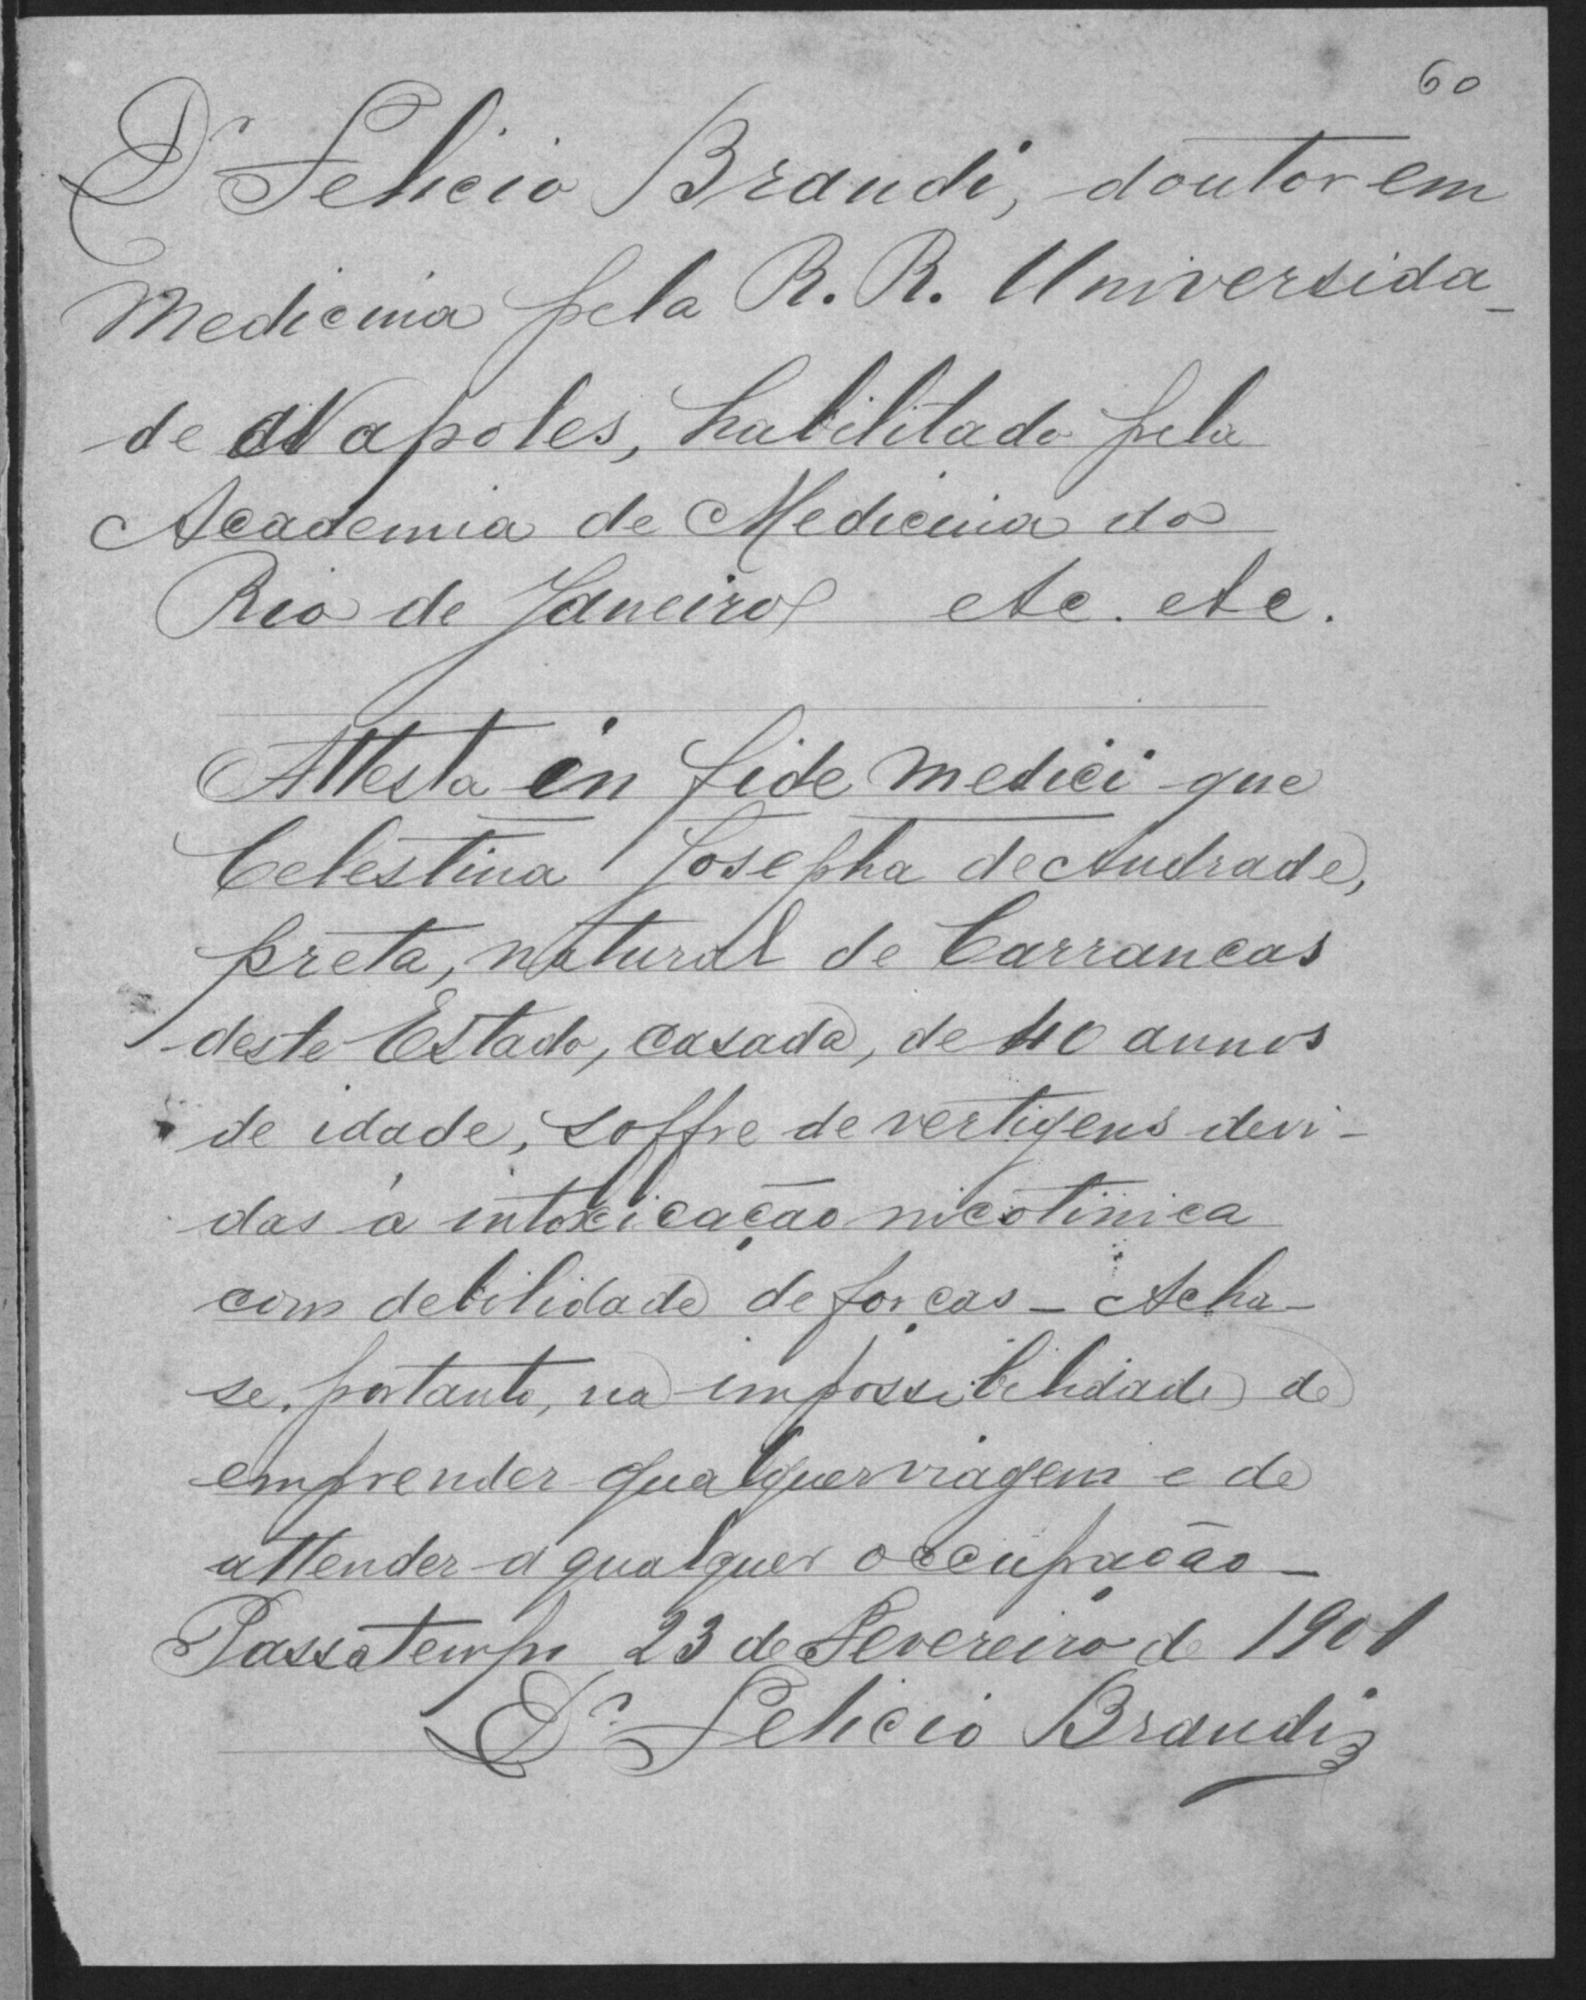 60
Dr Felicio Brandi, doutor em
Medicina pela R. R. Universida-
de Napoles, habilitado pela
Academia de Medicina do
Rio de Janeiro etc. etc.
Attesta in fide medici que
Celestina Josepha de Andrade,
preta, natural de Carrancas
deste Estado, casada, de 40 annos
de idade, soffre de vertigens devi-
das á intoxicação nicotinica
com debilidade de forças - Acha-
se, portanto, na impossibilidade de
emprender qualquer viagem e de
attender a qualquer occupação -
Passatempo 23 de Fevereiro de 1901
Dr. Felicio Brandi